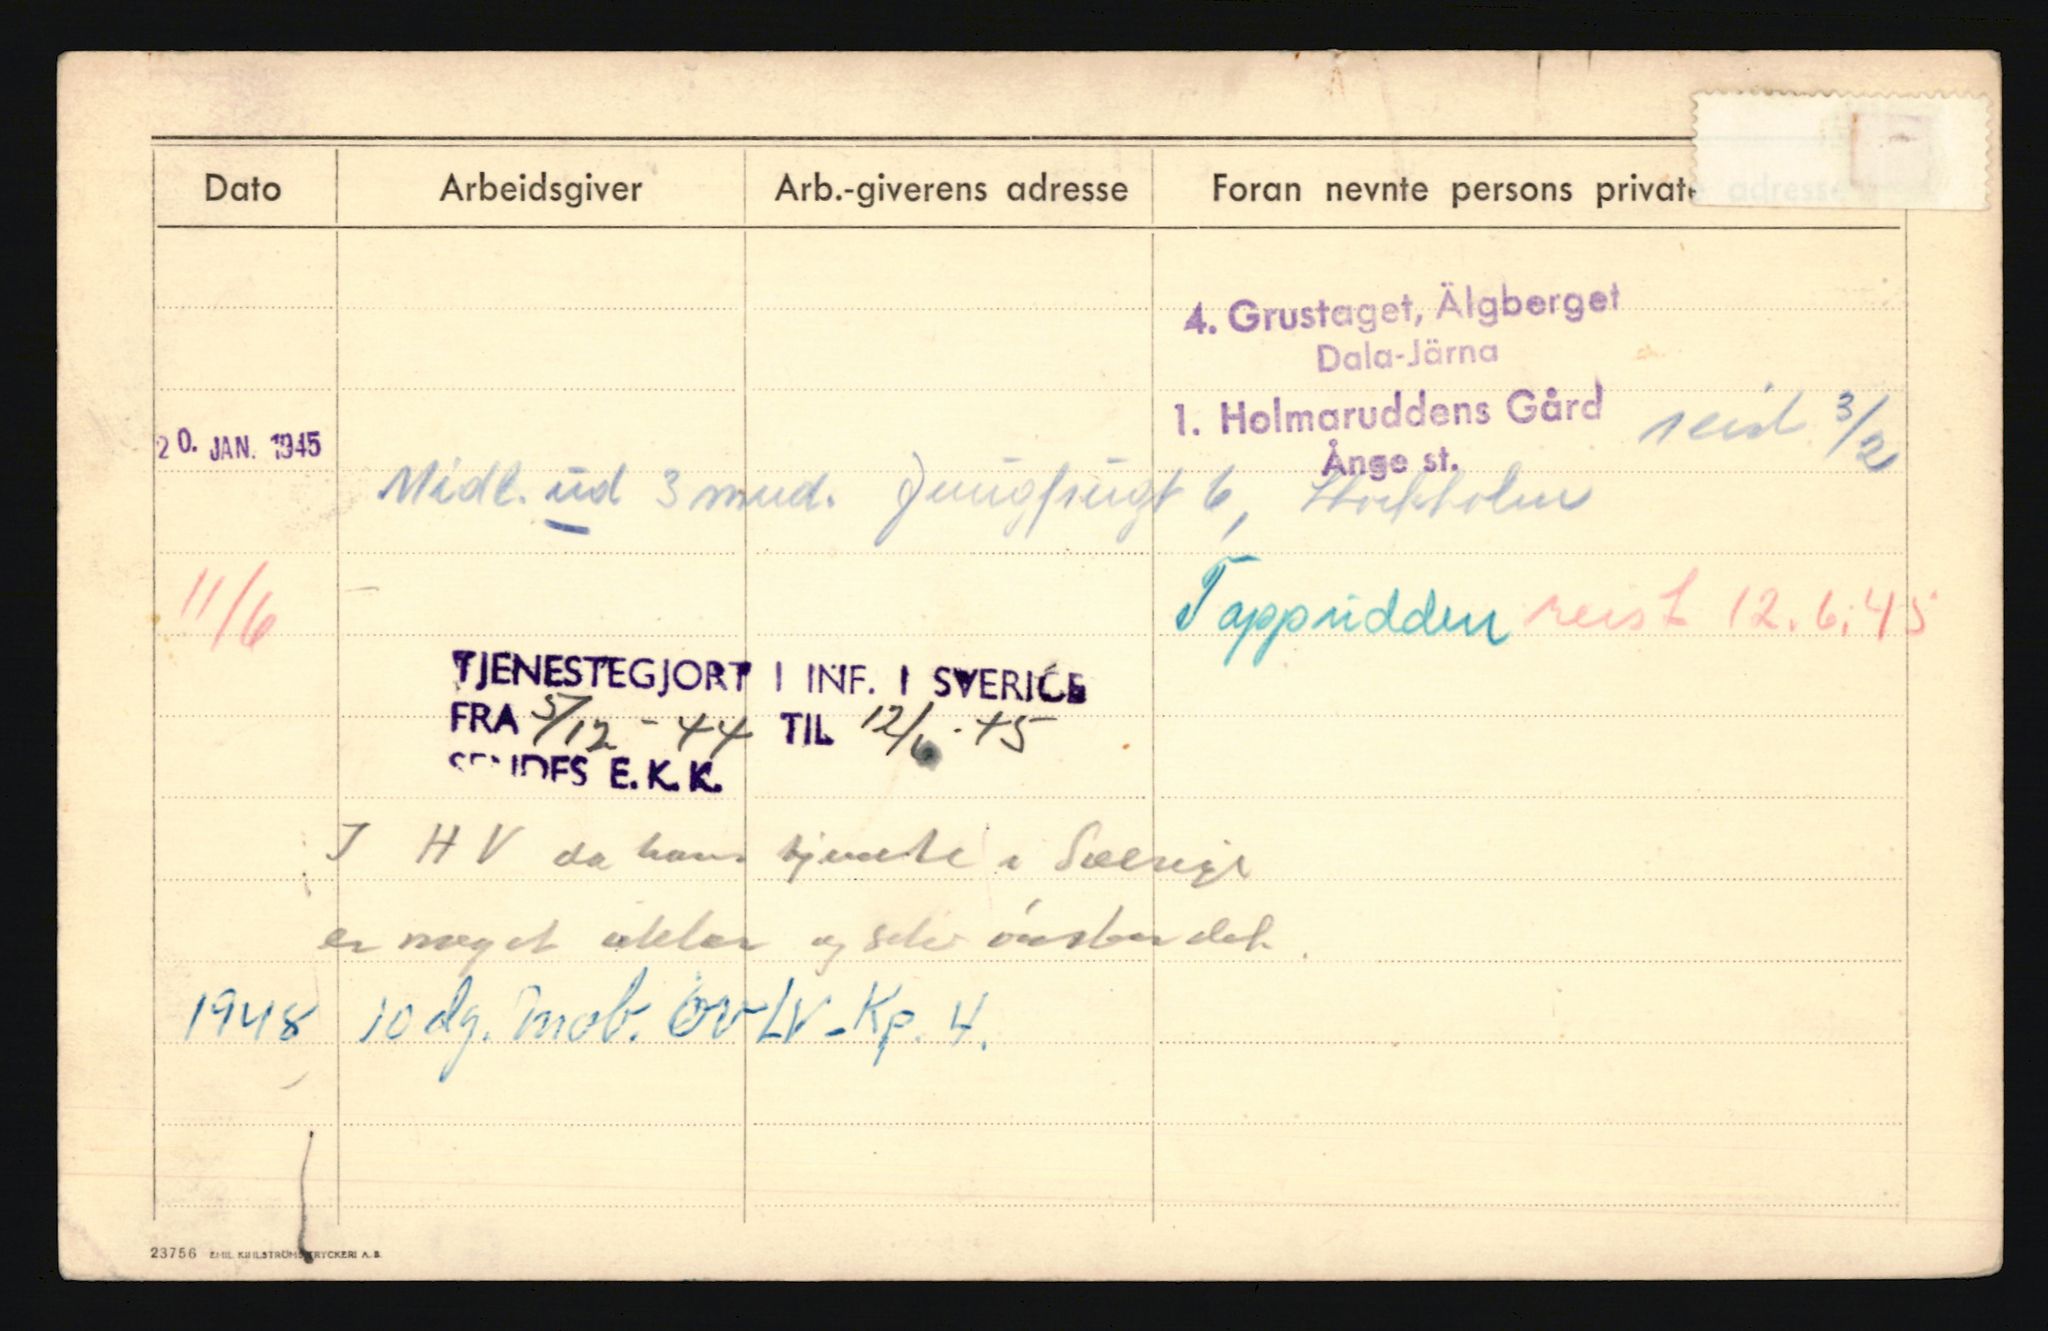 Dato Arbeidsgiver Arb.-giverens adresse Foran nevnte persons private adresse
4. Grustaget, Älgberget
Dala-Järna
1. Holmaruddens Gård
Ånge st.
reist 3/2
20. JAN. 1945
Midl. ud 3 mnd. 6, Stockholm
11/6 Tappudden reist 12.6.45
TJENESTEGJORT I INF. I SVERIGE
FRA 5/12 - 44 TIL 12/6 - 45
SENDES E. K. K.
I HV da hans tjeneste i Sverige
er meget uklar og
1948 10 dg. mob. ØV LV-Kp. 4.
23756 EMIL KIHLSTRÖMS TRYCKERI A. B.